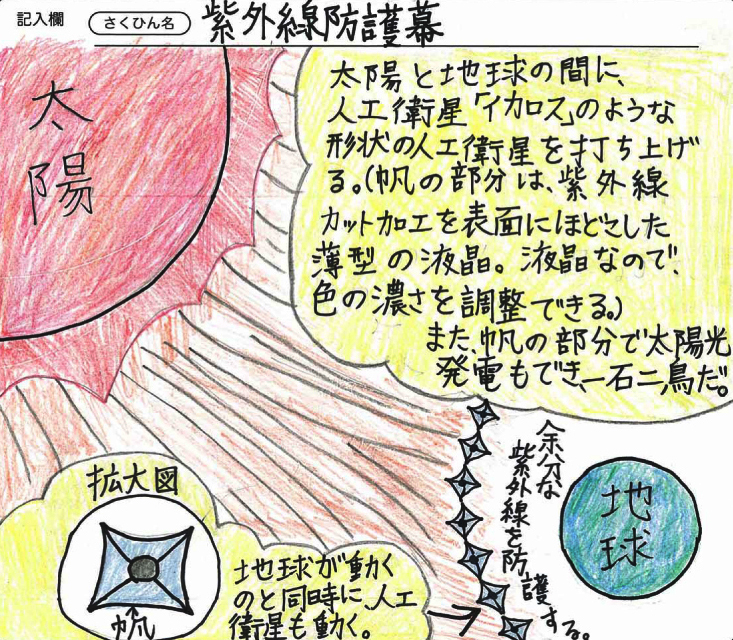 記入欄
さくひん名
紫外線防護幕
太陽
太陽と地球の間に、
人工衛星「イカロス」のような
形状の人工衛星を打ち上げ
る。(帆の部分は、紫外線
カット加工を表面にほどこした
薄型の液晶。液晶なので、
色の濃さを調整できる。)
また、帆の部分で太陽光
発電もでき、一石二鳥だ。
余分な
紫外線を防護する。
地球
拡大図
帆
地球が動く
のと同時に、人工
衛星も動く。